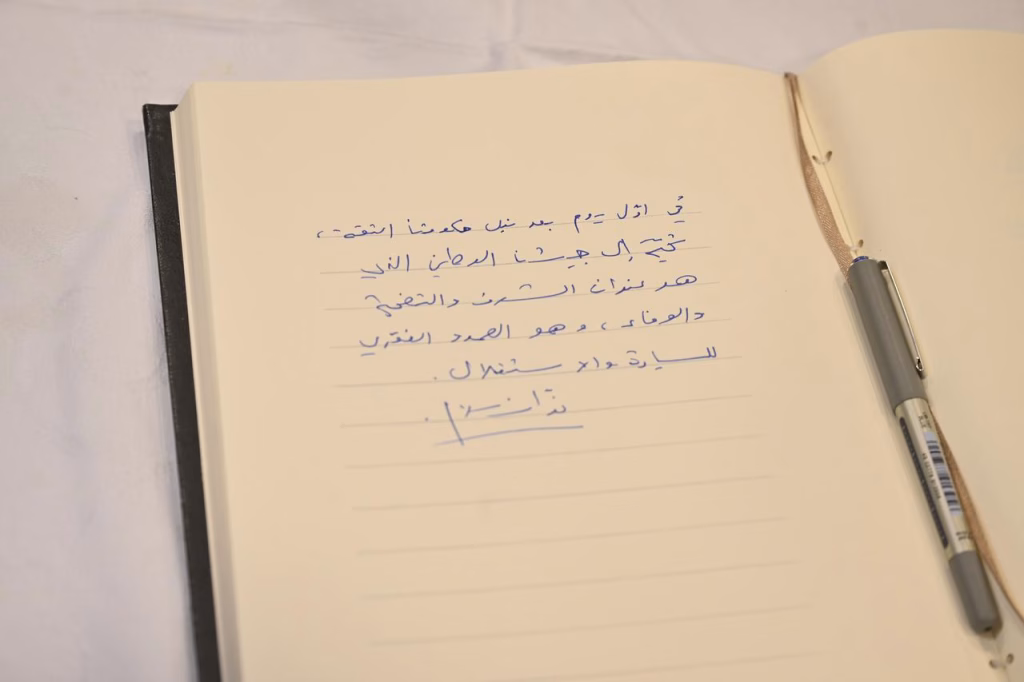 في اوّل يوم بعد نيل حكومتنا الثقة،
تحيّة إلى جيشنا الوطني الذي
هو عنوان الشرف والتضحية
والوفاء، وهو العمود الفقري
للسيادة والاستقلال.
نوّاف سلام.